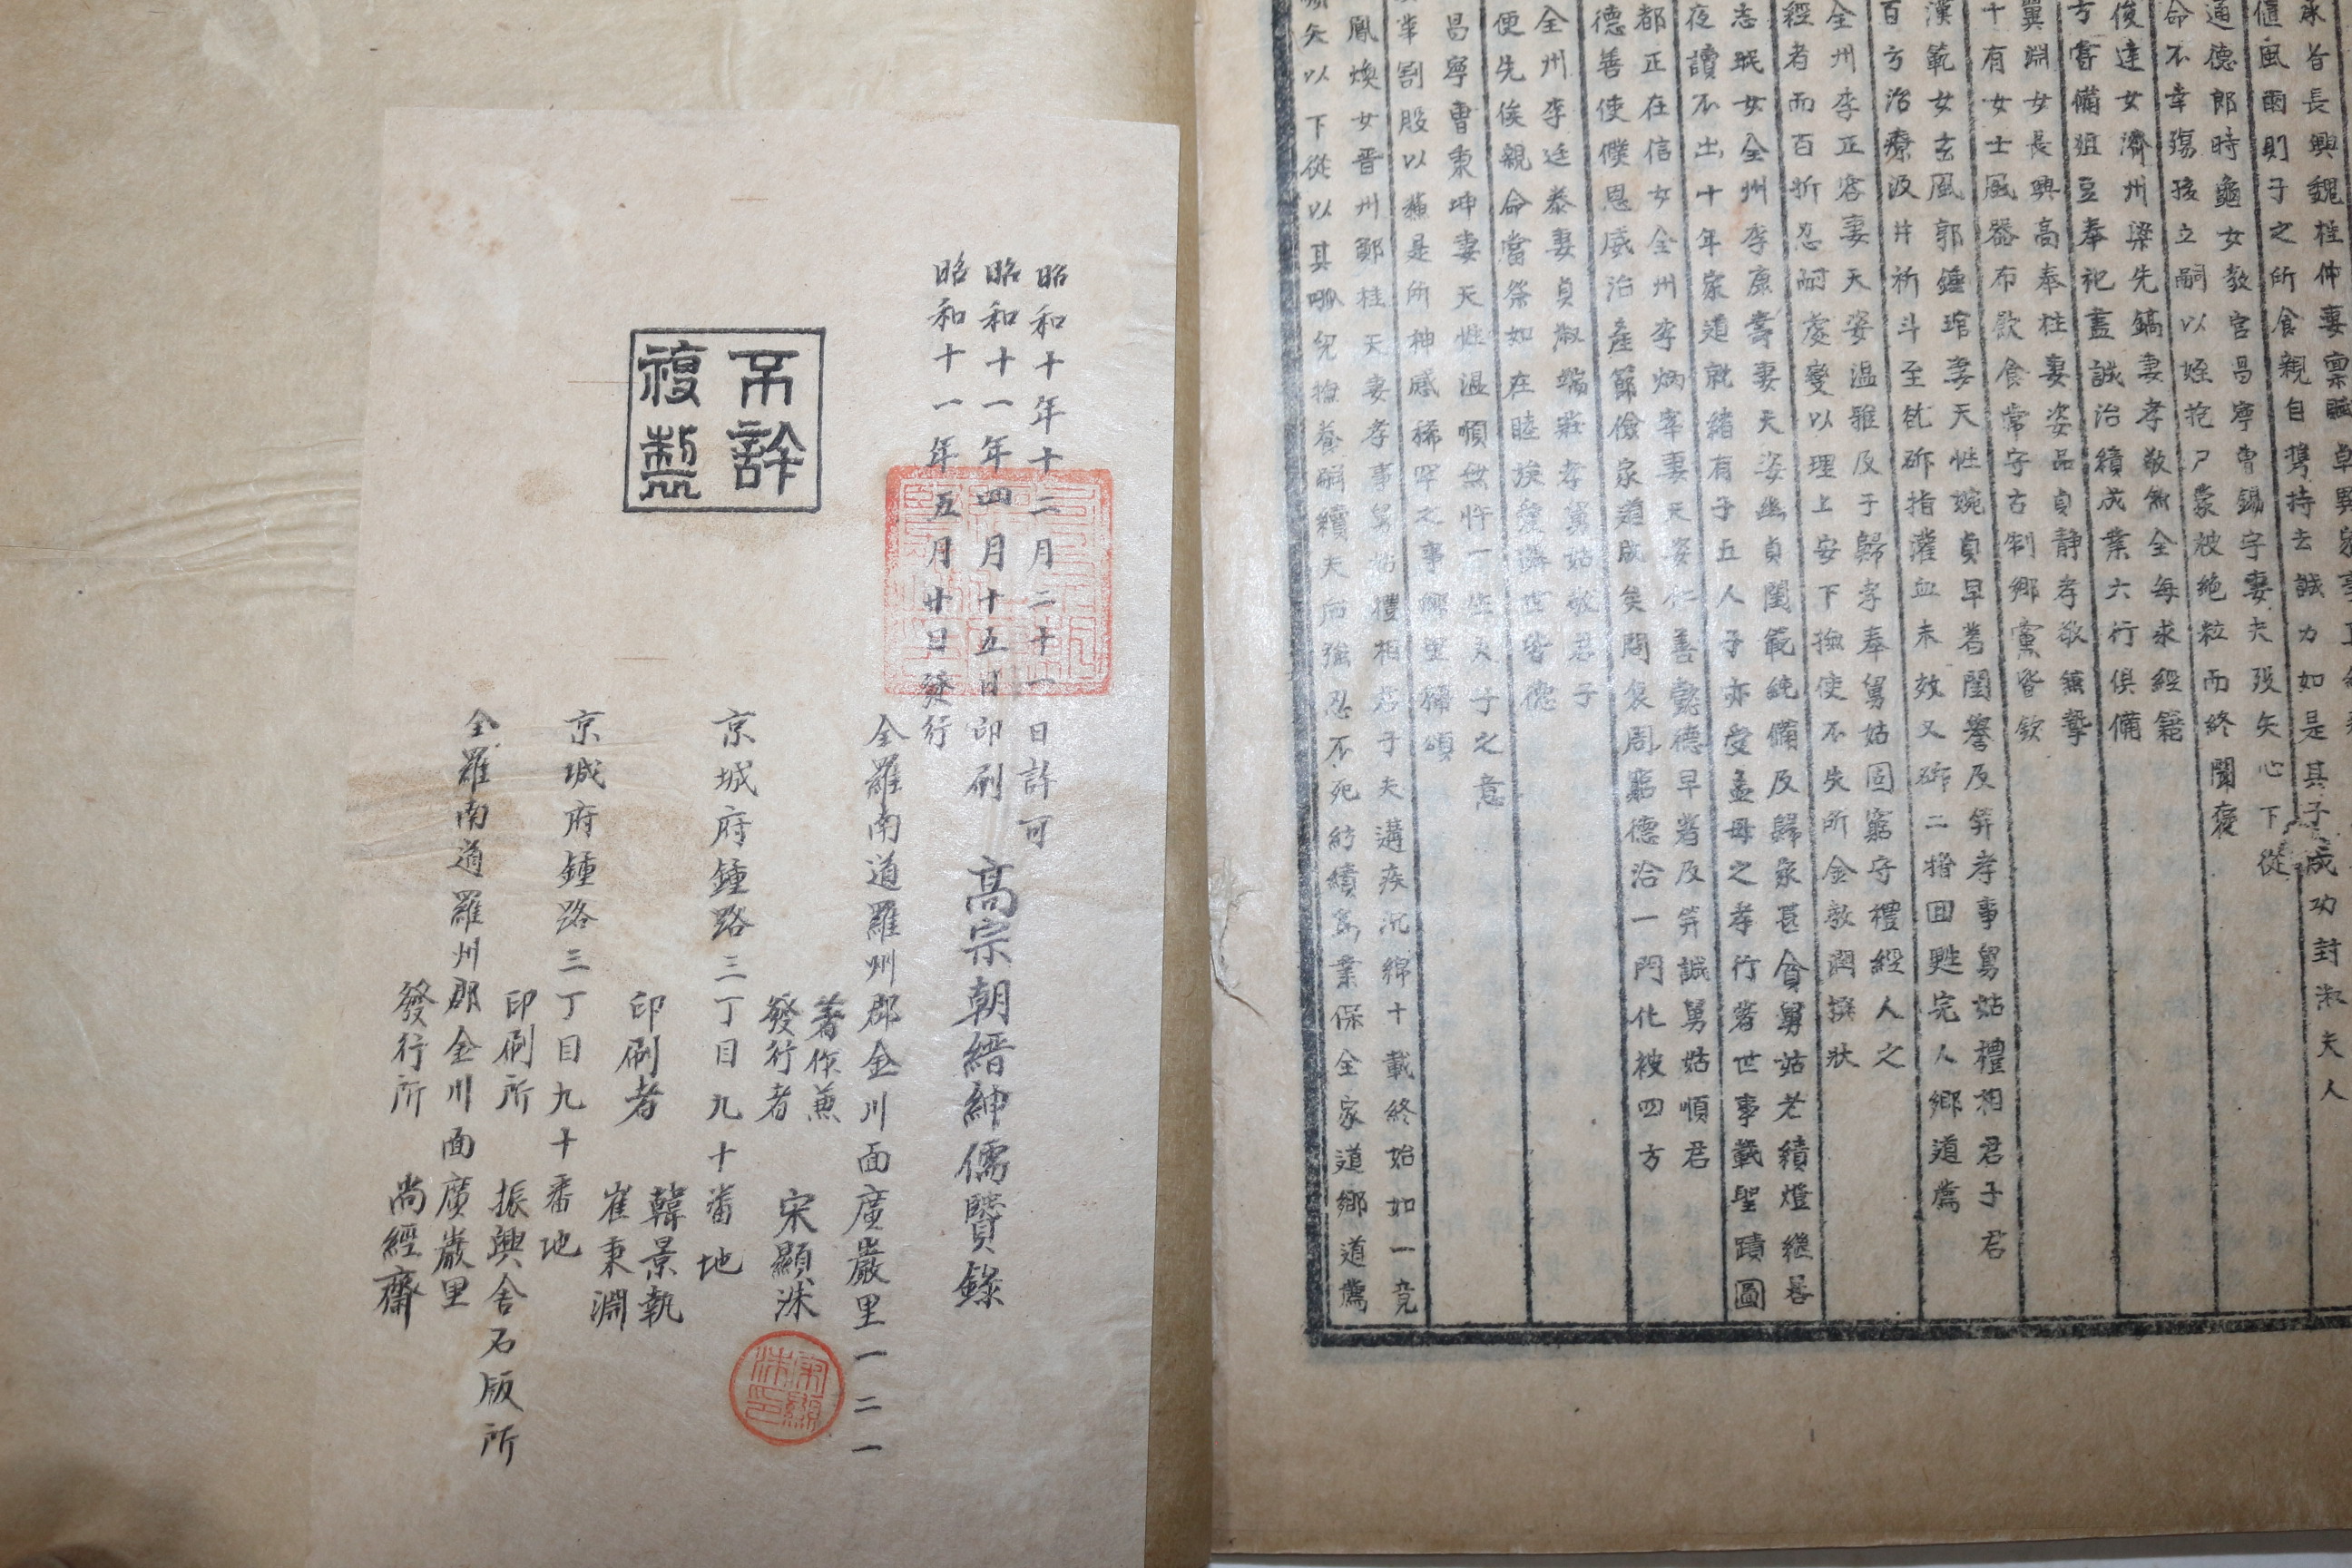 承旨長興魏桂仲妻稟賦卓異
値風雨則子之所食親自携持去誠力如是其子成功封淑夫人
通德郎時龜女教官昌寧曺錫宇妻夫歿矢心下從
命不幸殤孩立嗣以姪抱尸蒙被絶粒而終聞褒
俊達女濟州梁先鎬妻孝敬無全每求經籍
方害備俎豆奉祀盡誠治績成業六行俱備
翼淵女長興高奉柱妻姿品貞靜孝敬無摯
十有女士風器布飮食常守古制鄉黨皆欽
漢範女玄風郭鍾琯妻天性婉貞早著閨譽及笄孝事舅姑禮相君子君
百方治療汲井祈斗至於斫指灌血未效又斫二指回甦完人鄉道薦
全州李正容妻天姿溫雅及于歸孝奉舅姑固窮守禮經人之
經者而百折忍耐處變以理上安下撫使不失所金敎潤撰狀
志珉女全州李康壽妻天姿幽貞閨範純備及歸家甚貧舅姑老績燈繼晷
夜讀不出十年家道就緖有子五人子亦受孟母之孝行著世事載聖蹟圖
都正在信女全州李炳宰妻天姿仁善懿德早著及笄誠舅姑順君
德善使僕恩威治產節儉家道成矣問喪周窮德洽一門化被四方
全州李廷泰妻貞淑端莊孝舅姑敬君子
便先俟親命當祭如在睦族愛隣世皆德
昌寧曺秉坤妻天性溫順無忤一生夫子之意
割股以藥是所神感稀罕之事鄉里稱頌
鳳煥女晋州鄭桂天妻孝事舅姑禮相君子夫遘疾沉綿十載終始如一竟
矢以下從以其呱兒撫養嗣續夫而强忍不死紡績爲業保全家道鄉道薦
昭和十年十二月二十一日許可
昭和十一年四月十五日印刷
昭和十一年五月廿日發行
高宗朝縉紳儒賢錄
全羅南道羅州郡金川面廣巖里一二一
著作兼
發行者 宋顯洙
京城府鍾路三丁目九十番地
印刷者 韓景執
崔秉淵
京城府鍾路三丁目九十番地
印刷所 振興舍石版所
全羅南道羅州郡金川面廣巖里
發行所 尚經齋
不許
複製
宋顯
洙印